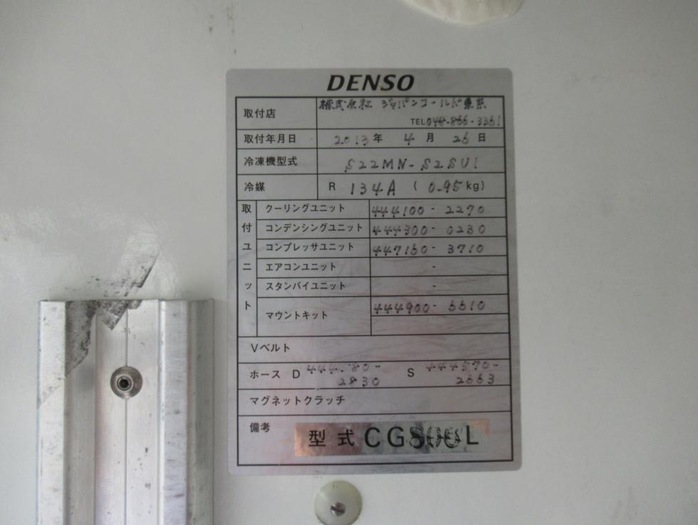 DENSO
取付店 株式会社 ジャパンコールド東京
TEL 048-866-3361
取付年月日 2013年 4月 26日
冷凍機型式 S22MN-S2SU1
冷媒 R 134A ( 0.95kg)
取付ユニット
クーリングユニット 444100-2270
コンデンシングユニット 444300-0230
コンプレッサユニット 447150-3710
エアコンユニット -
スタンバイユニット -
マウントキット 444900-5510
Vベルト
ホース D S
2830 2663
マグネットクラッチ
備考 型式